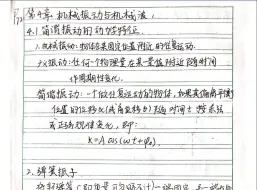 第4章：机械振动与机械波。
4.1 简谐振动的动力学特征。
1.机械振动：物体在某固定位置附近的往复运动。
广义振动：任何个物理量在某一量值附近随时间
作周期性变化。
简谐振动：一个做往复运动的物体，如果其偏离平衡
位置的位移x(或角位移θ)随时间t按余弦
或正弦规律变化，即：
x=Acos(ωt+φ₀).
2. 弹簧振子